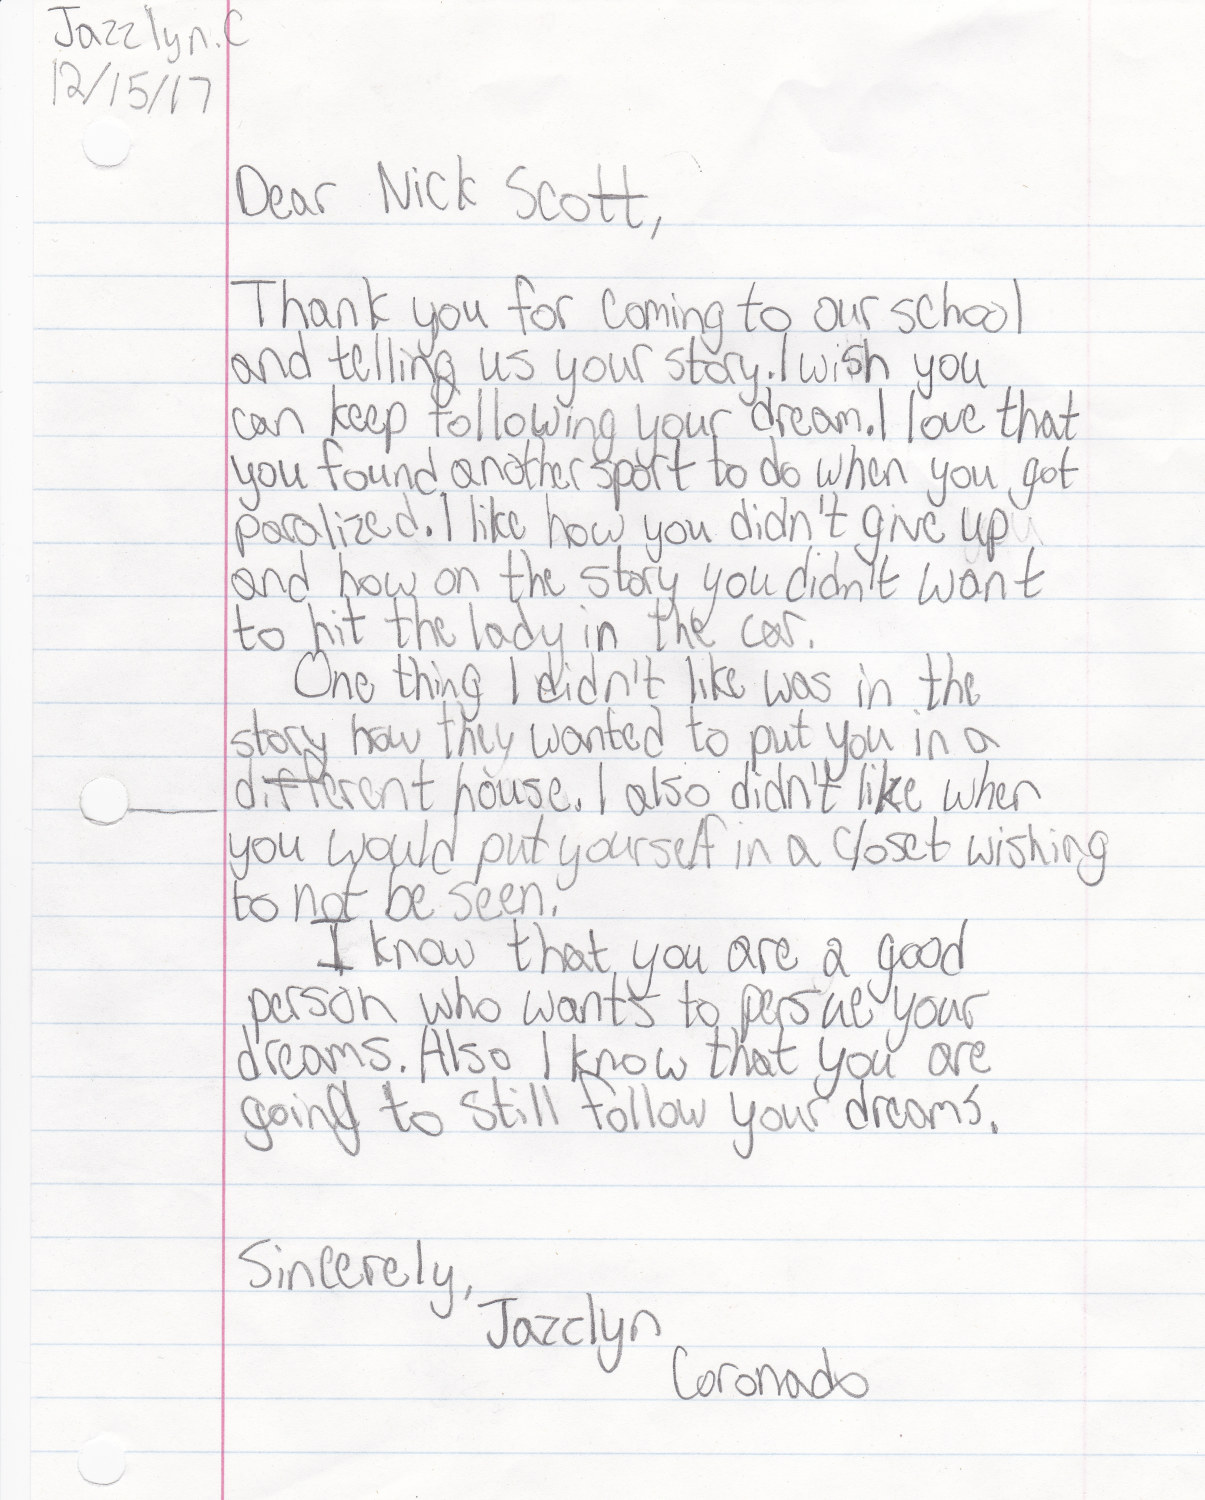 Jazzlyn.C
12/15/17
Dear Nick Scott,
Thank you for coming to our school
and telling us your story. I wish you
can keep following your dream. I love that
you found another sport to do when you got
paralized. I like how you didn't give up
and how on the story you didn't want
to hit the lady in the car.
One thing I didn't like was in the
story how they wanted to put you in a
different house. I also didn't like when
you would put yourself in a closet wishing
to not be seen.
I know that you are a good
person who wants to persue your
dreams. Also I know that you are
going to still follow your dreams.
Sincerely,
Jazzlyn
Coronado